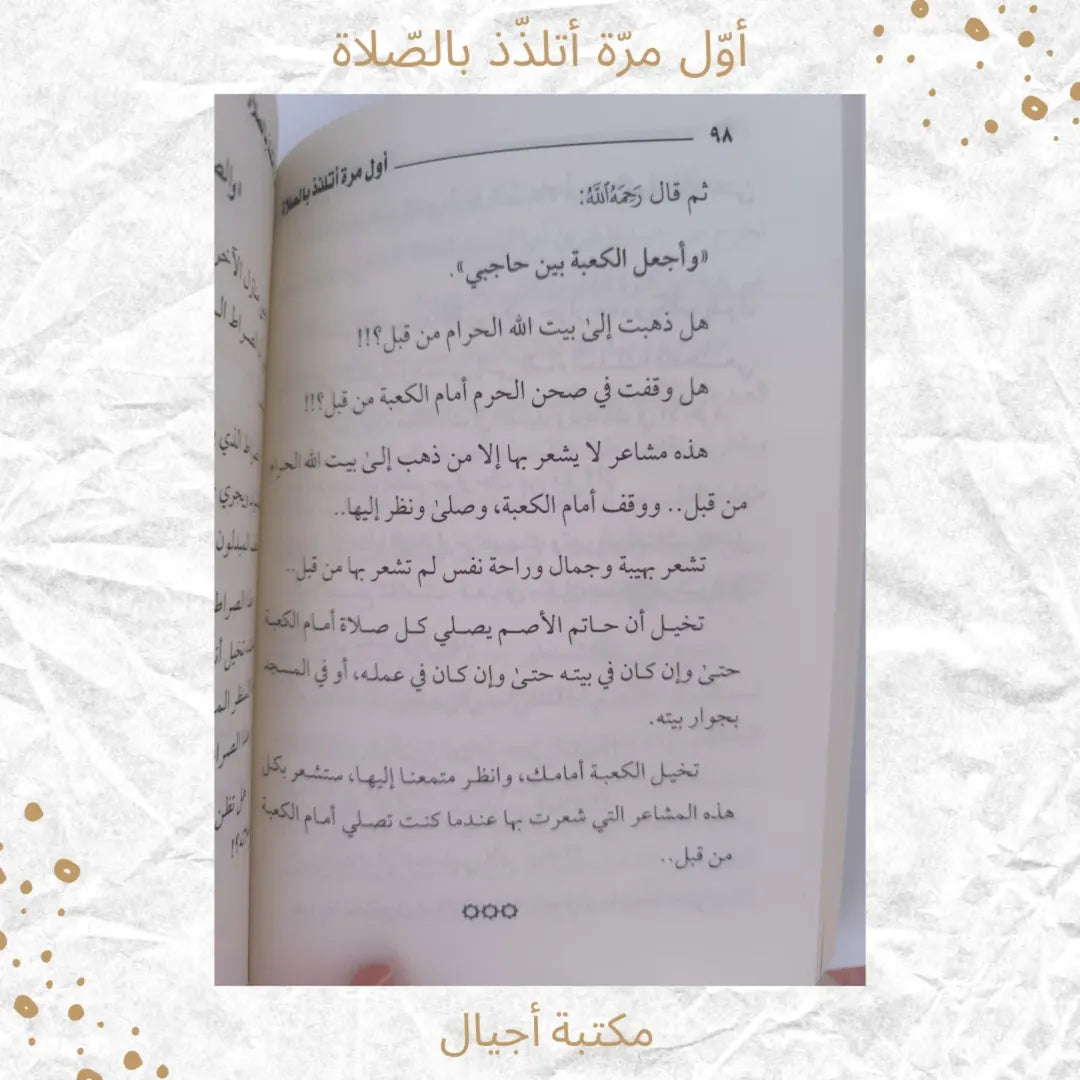 أوّل مرّة أتلذّذ بالصّلاة
٩٨
أول مرة أتلذذ بالصلاة
ثم قال رَحِمَهُ ٱللَّهُ:
«وأجعل الكعبة بين حاجبي».
هل ذهبت إلىٰ بيت الله الحرام من قبل؟!!
هل وقفت في صحن الحرم أمام الكعبة من قبل؟!!
هذه مشاعر لا يشعر بها إلا من ذهب إلىٰ بيت الله الحرام
من قبل.. ووقف أمام الكعبة، وصلىٰ ونظر إليها..
تشعر بهيبة وجمال وراحة نفس لم تشعر بها من قبل..
تخيل أن حاتم الأصم يصلي كل صلاة أمام الكعبة
حتىٰ وإن كان في بيته حتىٰ وإن كان في عمله، أو في المسجد
بجوار بيته.
تخيل الكعبة أمامك، وانظر متمعنا إليها، ستشعر بكل
هذه المشاعر التي شعرت بها عندما كنت تصلي أمام الكعبة
من قبل..
مكتبة أجيال